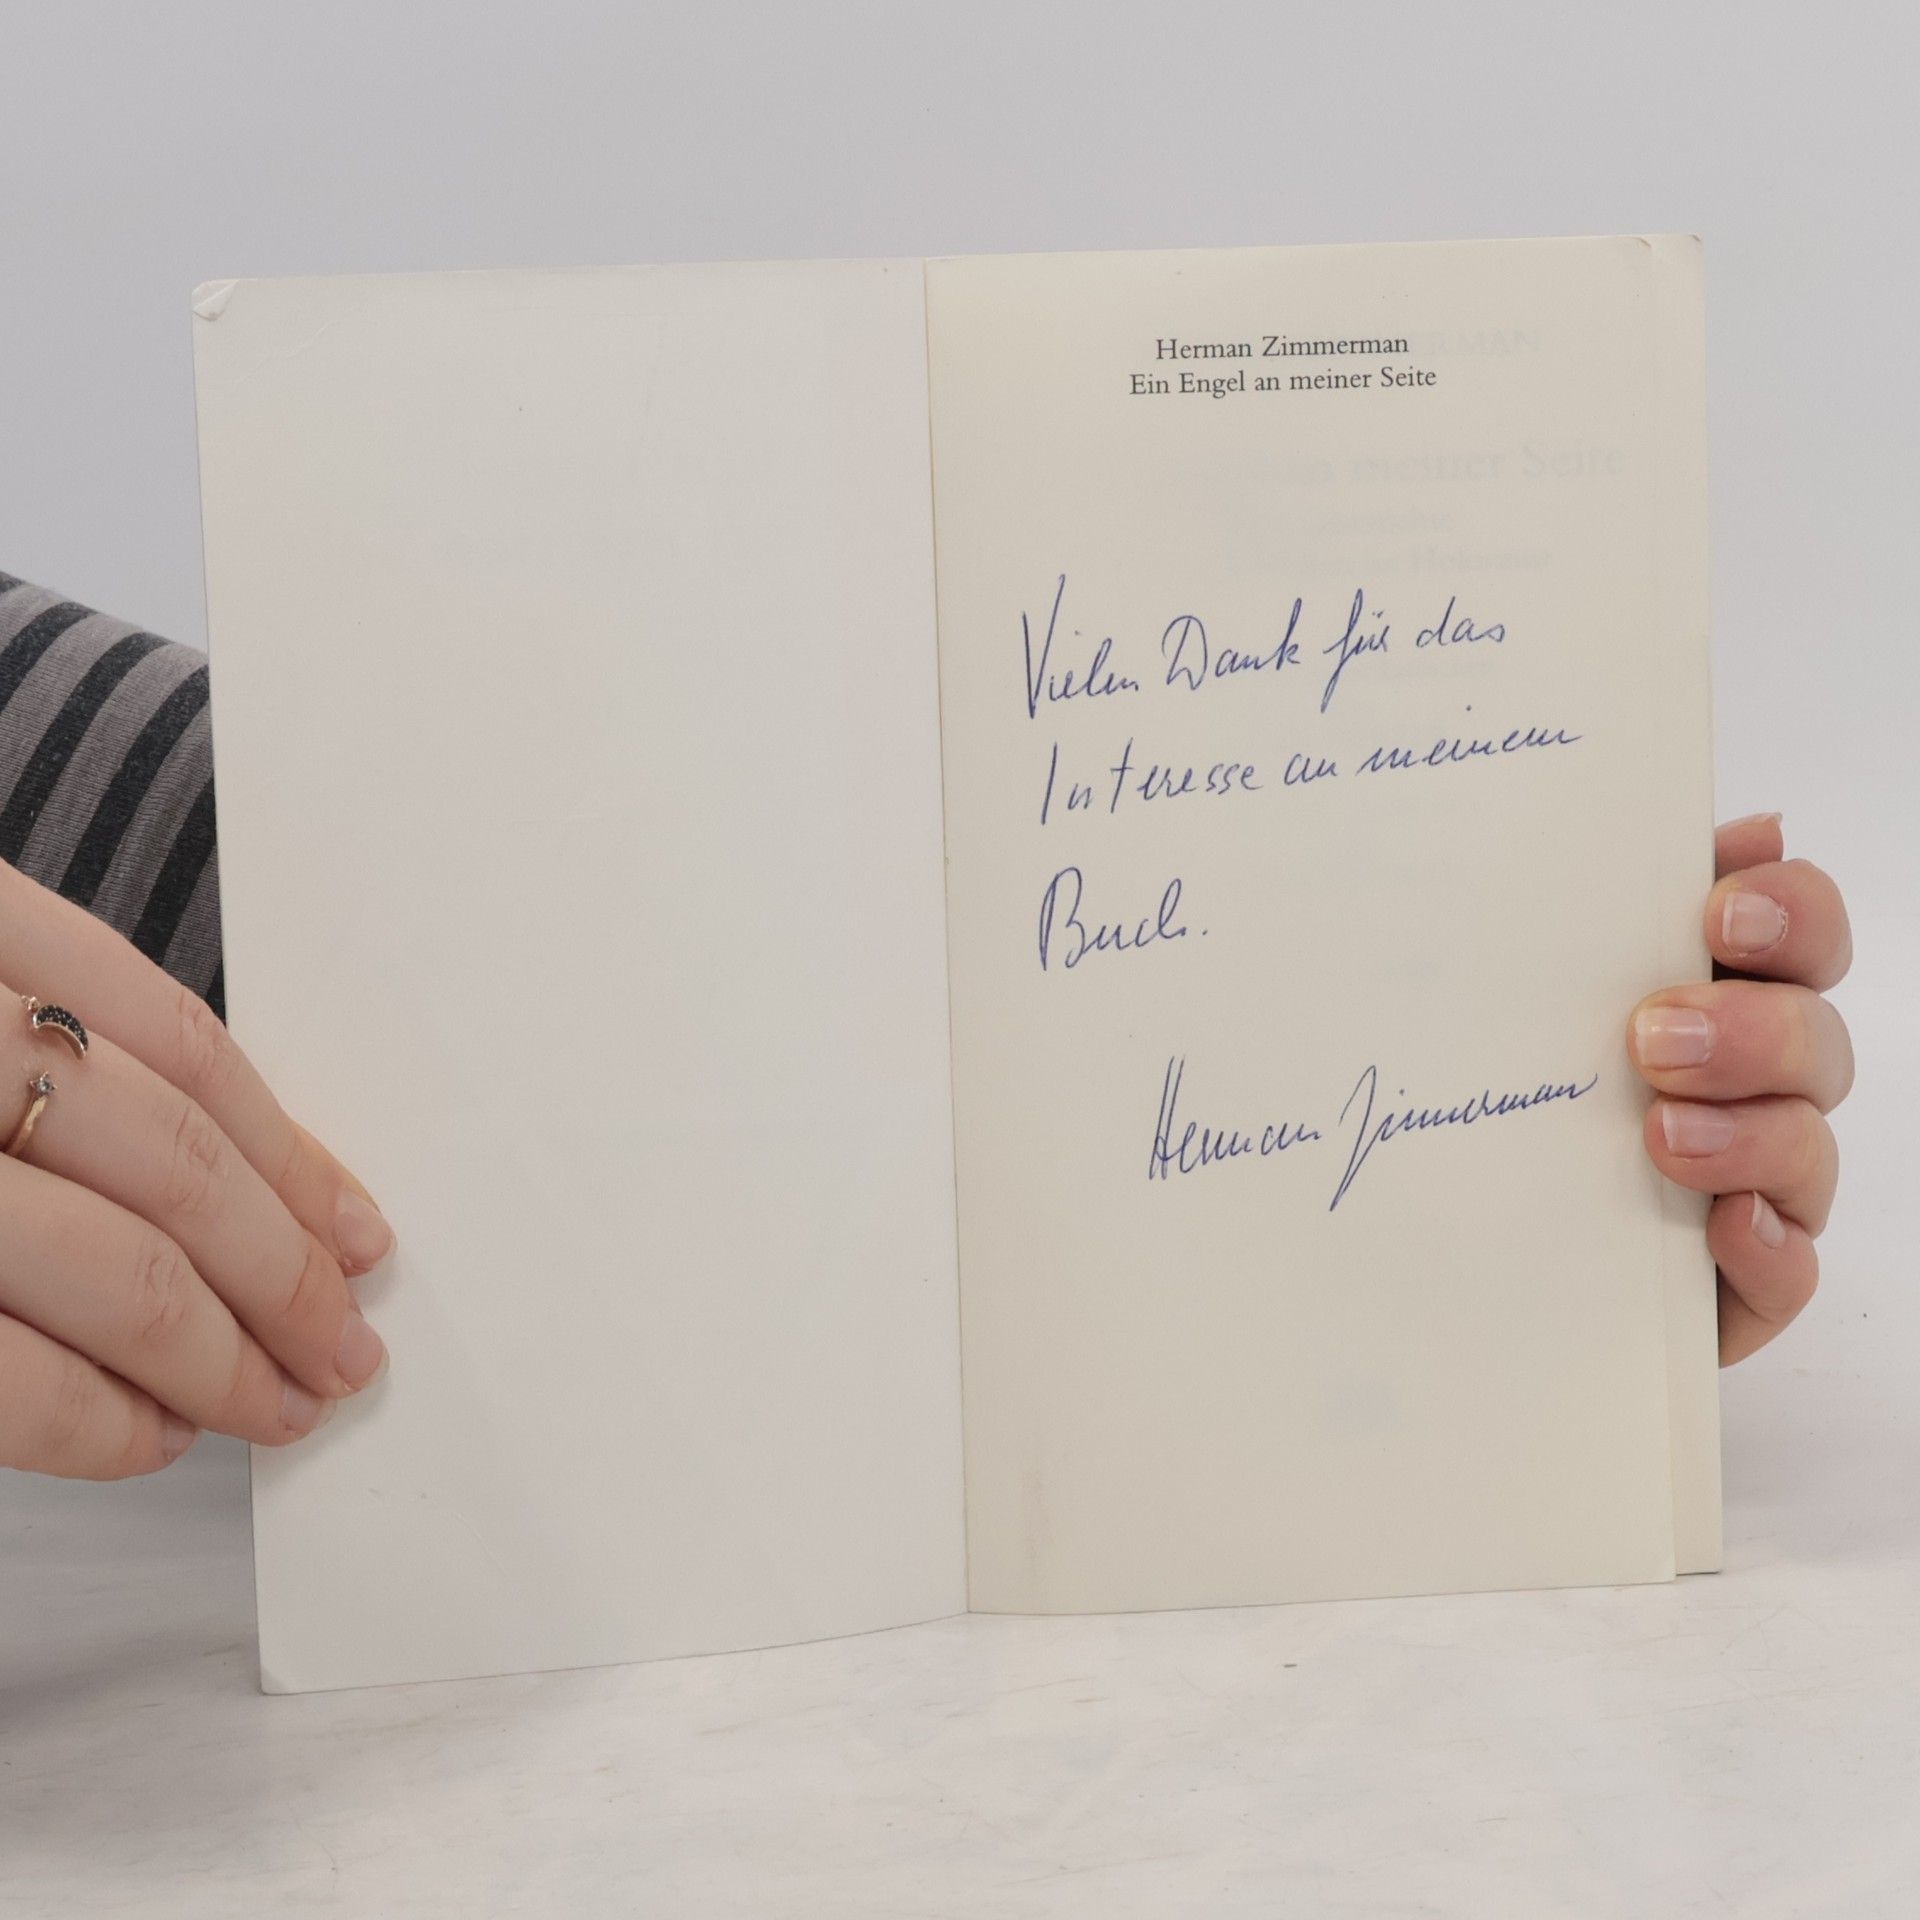 Herman Zimmerman
Ein Engel an meiner Seite
meiner Seite
Vielen Dank für das
Interesse an meinem
Buch.
Herman Zimmerman